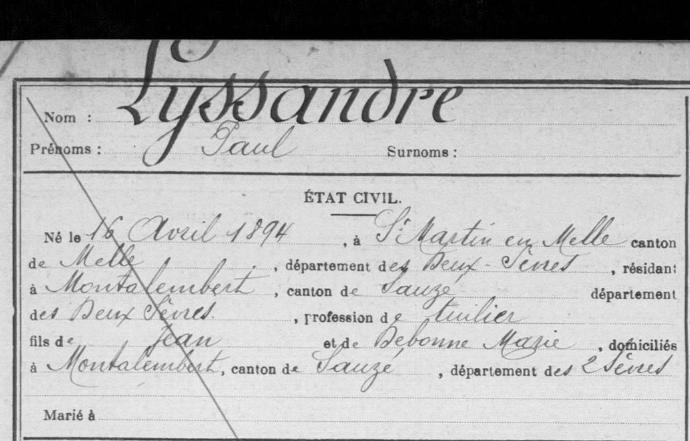 Nom : Lyssandre
Prénoms : Paul Surnoms :
ÉTAT CIVIL.
Né le 16 Avril 1894, à St Martin en Melle canton
de Melle, département des Deux-Sèvres, résidant
à Montalembert, canton de Sauzé département
des Deux Sèvres, profession de tuilier
fils de Jean et de Debonne Marie, domiciliés
à Montalembert, canton de Sauzé, département des 2 Sèvres
Marié à